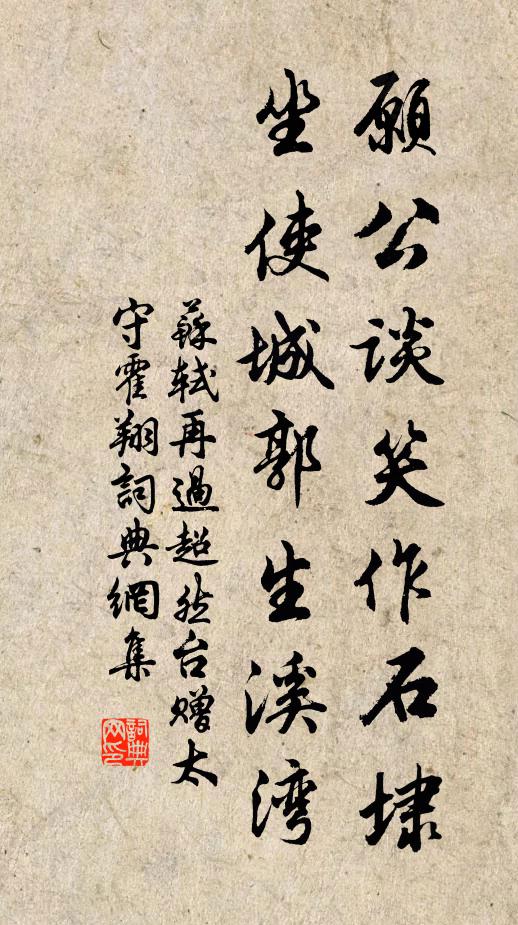 願公談笑作石埭
坐使城郭生溪湾
蘇轼再過超然台赠太
守霍翔詞典網集
詞典网印